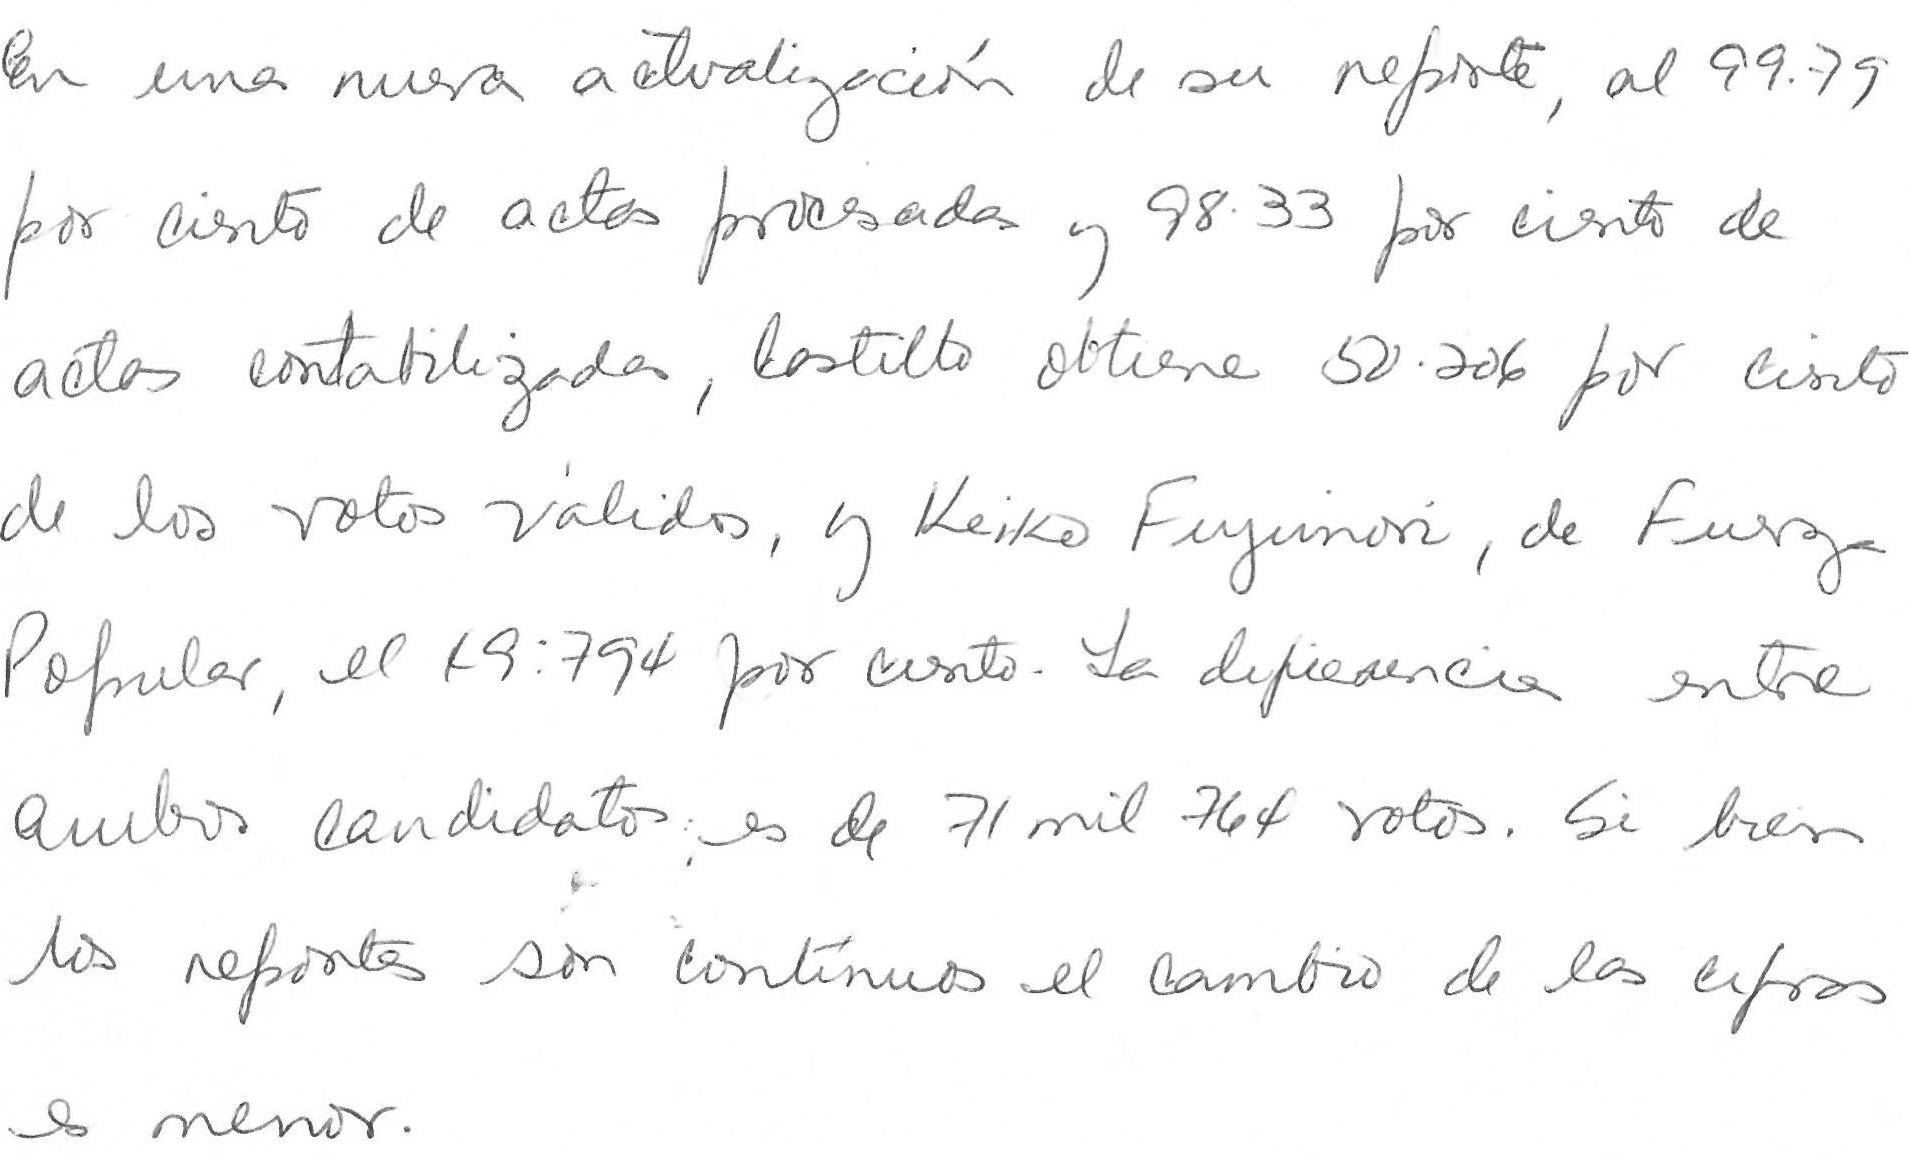 En una nueva actualización de su reporte, al 99.79
por ciento de actas procesadas y 98.33 por ciento de
actas contabilizadas, Castillo obtiene 50.206 por ciento
de los votos válidos, y Keiko Fujimori, de Fuerza
Popular, el 49.794 por ciento. La diferencia entre
ambos candidatos es de 71 mil 764 votos. Si bien
los reportes son contínuos el cambio de las cifras
es menor.